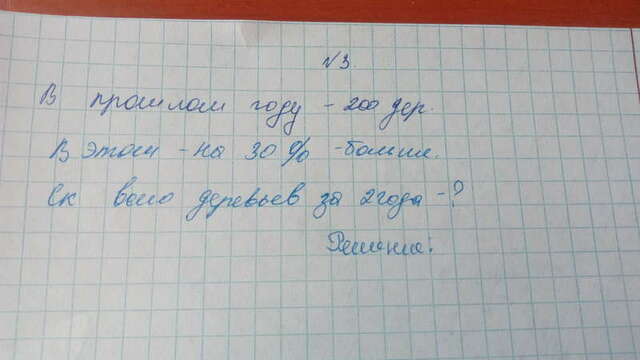 №3.
В прошлом году - 200 дер.
В этом - на 30% - больше.
Ск всего деревьев за 2 года - ?
Решение: